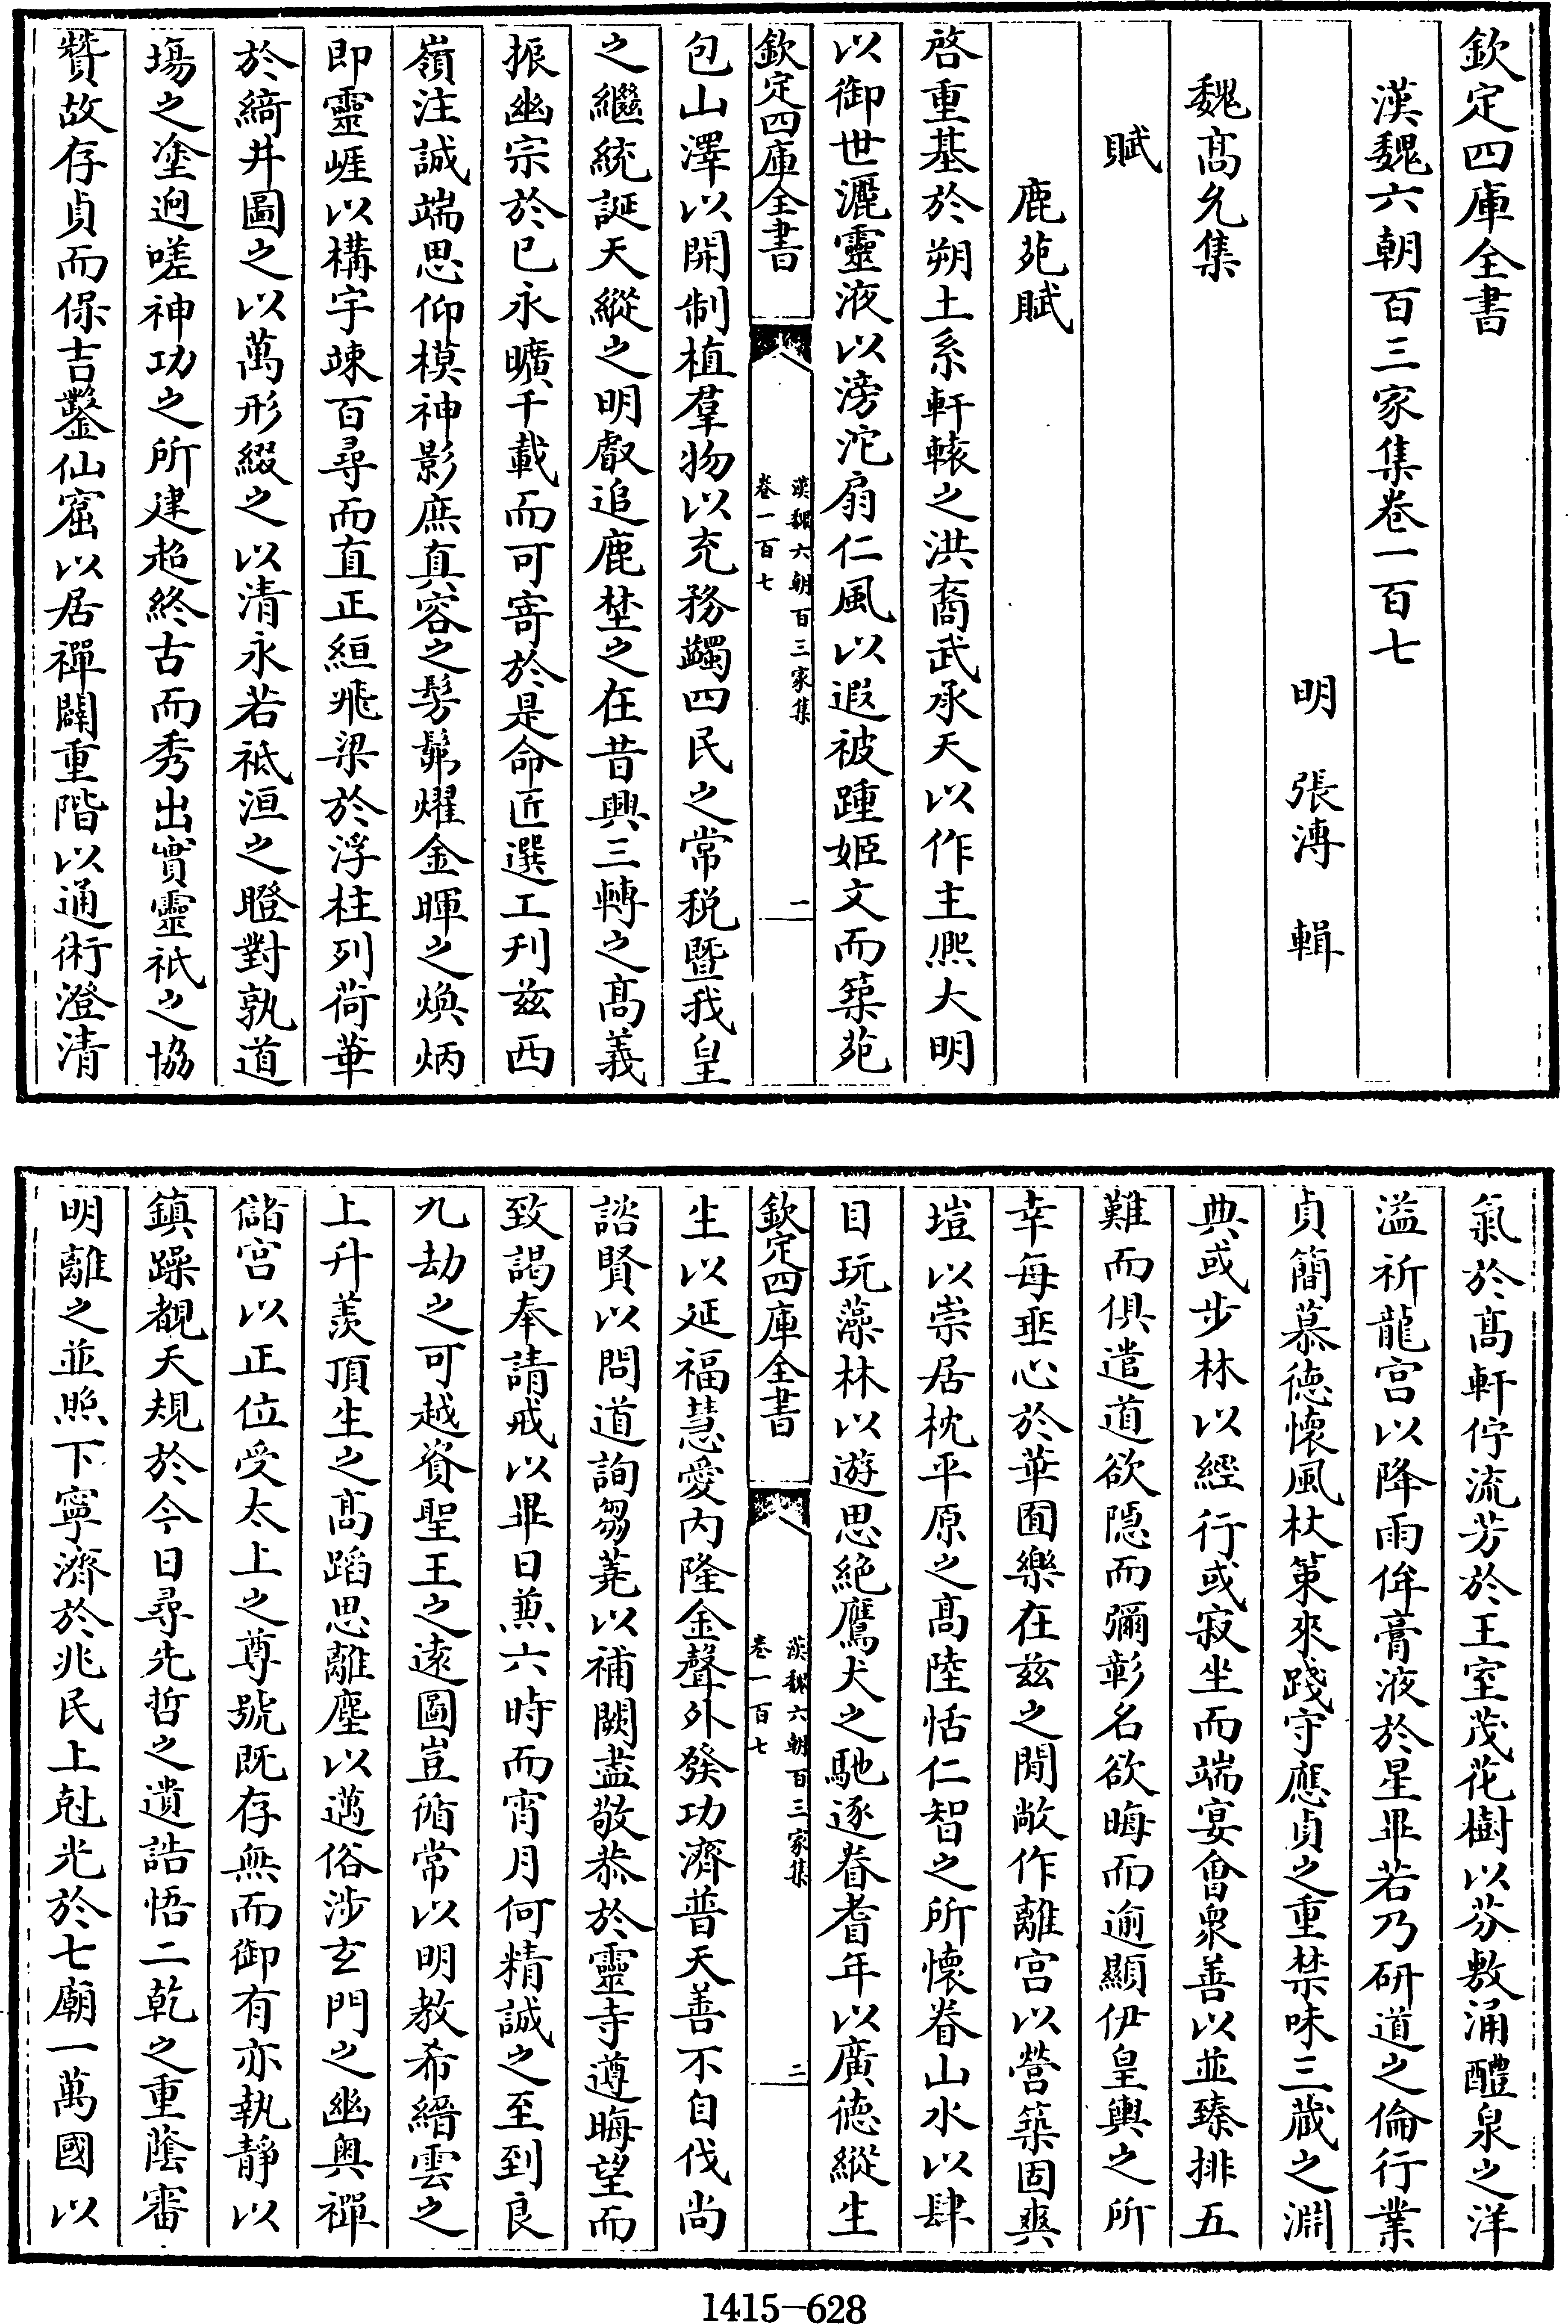 欽定四庫全書
漢魏六朝百三家集卷一百七
明　張溥　輯
魏髙允集
賦
鹿苑賦
啓重基於朔土系軒轅之洪裔武承天以作主熈大明
以御世灑靈液以滂沱扇仁風以遐被踵姬文而築苑
欽定四庫全書
漢魏六朝百三家集
卷一百七
一
包山澤以開制植羣物以充務蠲四民之常税暨我皇
之繼統誕天縱之明叡追鹿埜之在昔興三轉之髙義
振幽宗於已永曠千載而可寄於是命匠選工刋兹西
嶺注誠端思仰模神影庶真容之髣髴燿金暉之煥炳
即靈崕以構宇竦百尋而直正絙飛梁於浮柱列荷華
於綺井圖之以萬形綴之以清永若祗洹之瞪對孰道
塲之塗迥嗟神功之所建超終古而秀出實靈祇之協
贊故存貞而保吉鑿仙窟以居禪闢重階以通術澄清
氣於髙軒佇流芳於王室茂花樹以芬敷涌醴泉之洋
溢祈龍宫以降雨侔膏液於星畢若乃研道之倫行業
貞簡慕徳懷風杖策來踐守應貞之重禁味三藏之淵
典或步林以經行或寂坐而端宴會衆善以並臻排五
難而俱遣道欲隠而彌彰名欲晦而逾顯伊皇輿之所
幸每垂心於華囿樂在兹之閒敞作離宫以營築固爽
塏以崇居枕平原之髙陸恬仁智之所懷眷山水以肆
目玩藻林以遊思絶鷹犬之馳逐眷耆年以廣徳縱生
欽定四庫全書
漢魏六朝百三家集
卷一百七
二
生以延福慧愛内隆金聲外發功濟普天善不自伐尚
諮賢以問道詢芻蕘以補闕盡敬恭於靈寺遵晦望而
致謁奉請戒以畢日兼六時而宵月何精誠之至到良
九劫之可越資聖王之逺圖豈循常以明教希縉雲之
上升羡頂生之髙蹈思離塵以邁俗涉玄門之幽奥禪
儲宫以正位受太上之尊號既存無而御有亦執靜以
鎮躁覩天規於今日尋先哲之遺誥悟二乾之重蔭審
明離之並照下寧濟於兆民上尅光於七廟一萬國以
1415-628